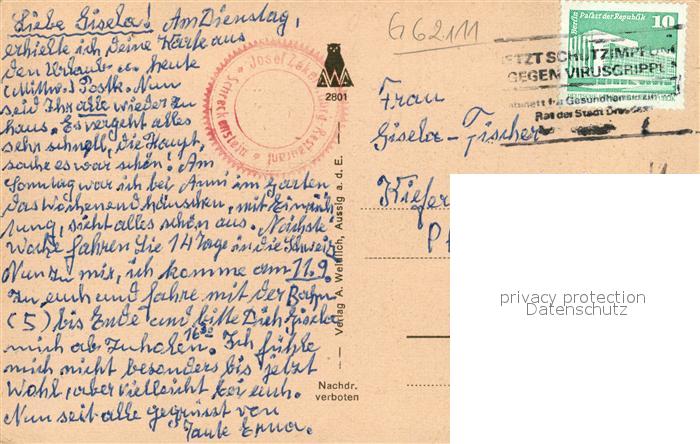 Liebe Gisela! Am Dienstag,
erhielte ich deine Karte aus
den Urlaub u. heute
(Mittw.) Postk. Nun
seid Ihr alle wieder zu
haus. Es vergeht alles
sehr schnell, die Haupt,
sache es war schön. Am
Sonntag war ich bei Anni im Garten
das Wochenendhäuschen, mit Einrich
tung, sieht alles schön aus. Nächste
Woche fahren die 14 Tage in die Schweiz
Nun zu mir, ich komme am 11.9.
zu euch und fahre mit der Bahn
(5) bis Ende und bitte Dich Gisela
16³⁰
mich ab zuholen. Ich fühle
mich nicht besonders bis jetzt
Wohl, aber vielleicht bei euch.
Nun seit alle gegrüsst von
Tante Erna.
Josef Zeke
Restaurant
Schreck
2801
Verlag A. Weinlich, Aussig a. d. E.
Nachdr.
verboten
G6211
JETZT SCHUTZIMPFUNG
GEGEN VIRUSGRIPPE
für Gesundheits
Rat der Stadt Dresden
Berlin, Palast der Republik
10
Frau
Gisela Fischer
Kiefer
privacy protection
Datenschutz